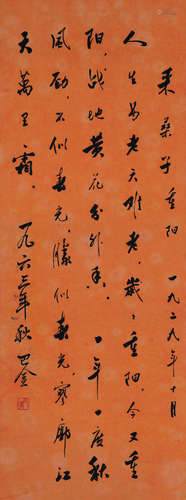 采桑子 重阳 一九二九年十月
人生易老天难老，歲々重阳，今又重
阳，战地黄花分外香。一年一度秋
风劲，不似春光，勝似春光，寥廓江
天萬里霜。一九六三年秋 巴金